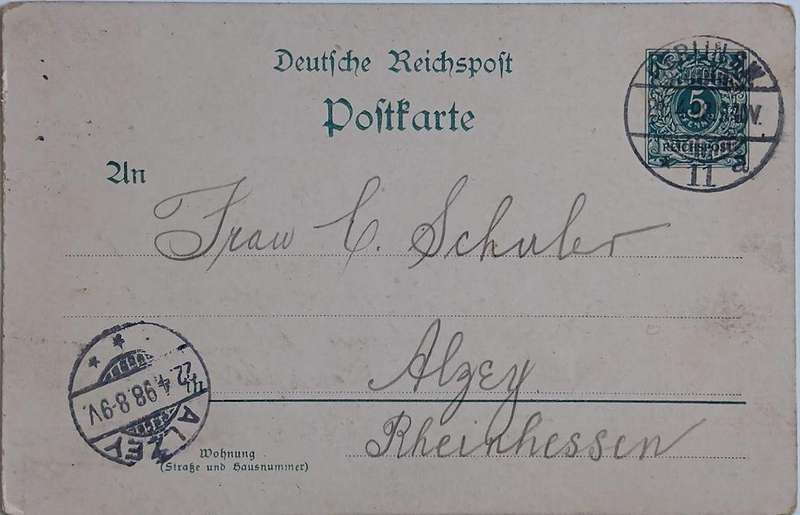 Deutsche Reichspost
Postkarte
BERLIN N.W.
5
REICHSPOST
11 a
An
Frau C. Schuler
Alzey
Rheinhessen
22.4.98.8-9V.
ALZEY
Wohnung
(Straße und Hausnummer)